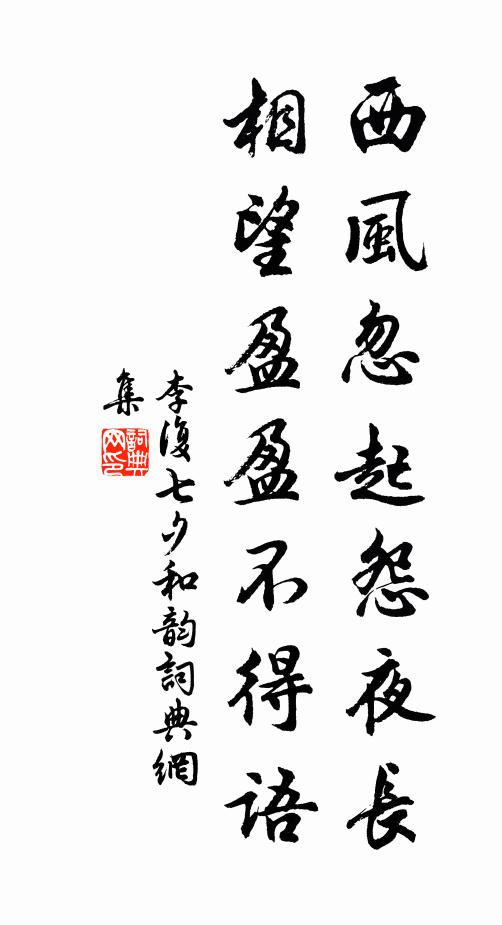 西風忽起怨夜長
相望盈盈不得語
李復七夕和韵詞典網
集
詞典网印